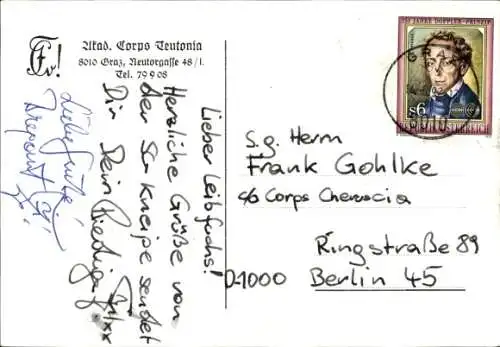 Akad. Corps Teutonia
8010 Graz, Neutorgasse 48/I.
Tel. 79 9 08
Lieber Leibfuchs!
Herzliche Grüße von
der SC Kneipe sendet
Dir Dein
Liebe Grüße!
150 JAHRE DOPPLER-PRINZIP
s6
REPUBLIK ÖSTERREICH
S.g. Herrn
Frank Gohlke
c/o Corps Cheruscia
Ringstraße 89
D-1000 Berlin 45